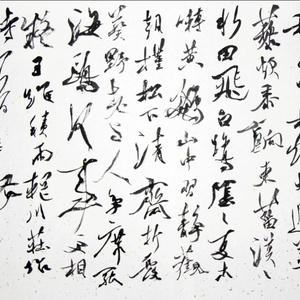 藜炊黍餉東菑漠〻
水田飛白鷺陰〻夏木
囀黃鸝山中習靜觀
朝槿松下清齋折露
葵野老與人爭席罷
海鷗何事更相
疑王維積雨輞川莊作